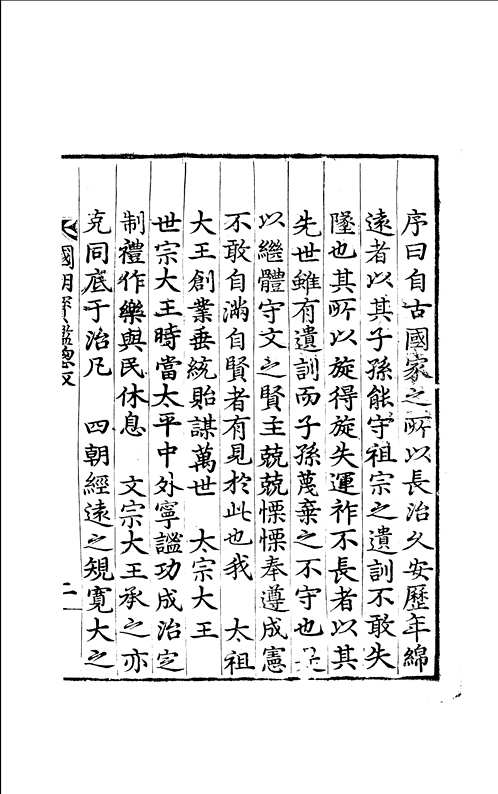 序曰自古國家之所以長治久安歷年綿
遠者以其子孫能守祖宗之遺訓不敢失
墜也其所以旋得旋失運祚不長者以其
先世雖有遺訓而子孫蔑棄之不守也是
以繼體守文之賢主兢兢慄慄奉遵成憲
不敢自滿自賢者有見於此也我 太祖
大王創業垂統貽謀萬世 太宗大王
世宗大王時當太平中外寧謐功成治定
制禮作樂與民休息 文宗大王承之亦
克同底于治凡 四朝經遠之規寬大之
國朝寶鑑總序 二